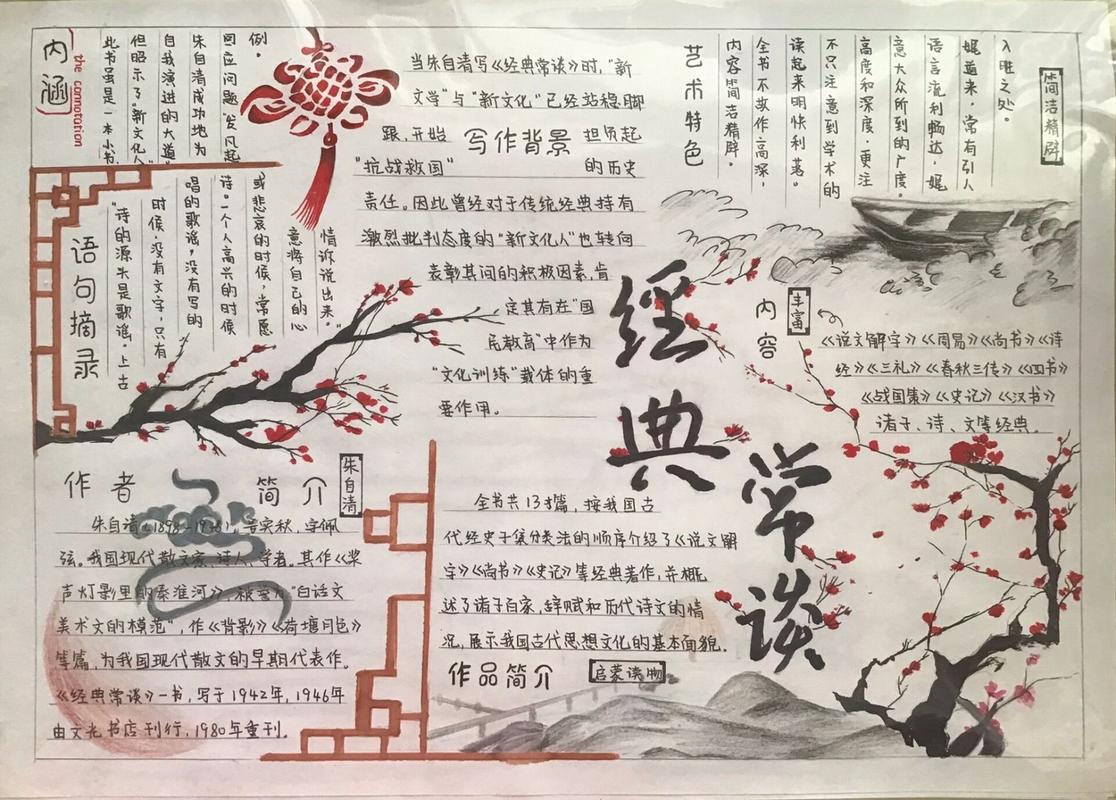 内涵
the connotation
此书虽是一本小书,
但昭示了"新文化人"
自我演进的大道。
朱自清成功地为
回应问题"发凡起
例。
语句摘录
"诗的源头是歌谣。上古
时候,没有文字,只有
唱的歌谣,没有写的
诗。一个人高兴的时候
或悲哀的时候,常愿
意将自己的心
情诉说出来。"
当朱自清写《经典常谈》时,"新
文学"与"新文化"已经站稳脚
跟,开始
写作背景
担负起
"抗战救国"
的历史
责任。因此曾经对于传统经典持有
激烈批判态度的"新文化人"也转向
表彰其间的积极因素,肯
定其有在"国
民教育"中作为
"文化训练"载体的重
要作用。
艺术特色
内容简洁精辟。
全书不故作高深,
读起来明快利落。
不只注意到学术的
高度和深度,更注
意大众所到的广度。
语言流利畅达,娓
娓道来,常有引人
入胜之处。
简洁精辟
經典
常谈
内容
丰富
《说文解字》《周易》《尚书》《诗
经》《三礼》《春秋三传》《四书》
《战国策》《史记》《汉书》
诸子、诗、文等经典。
作者
简介
朱自清
朱自清(1898-1948),号实秋,字佩
弦。我国现代散文家,诗人,学者。其作《桨
声灯影里的秦淮河》,被誉为"白话文
美术文的模范",作《背影》《荷塘月色》
等篇,为我国现代散文的早期代表作。
《经典常谈》一书,写于1942年,1946年
由文光书店刊行,1980年重刊。
全书共13篇,按我国古
代经史子集分类法的顺序介绍了《说文解
字》《尚书》《史记》等经典著作,并概
述了诸子百家,辞赋和历代诗文的情
况,展示我国古代思想文化的基本面貌。
作品简介
启蒙读物